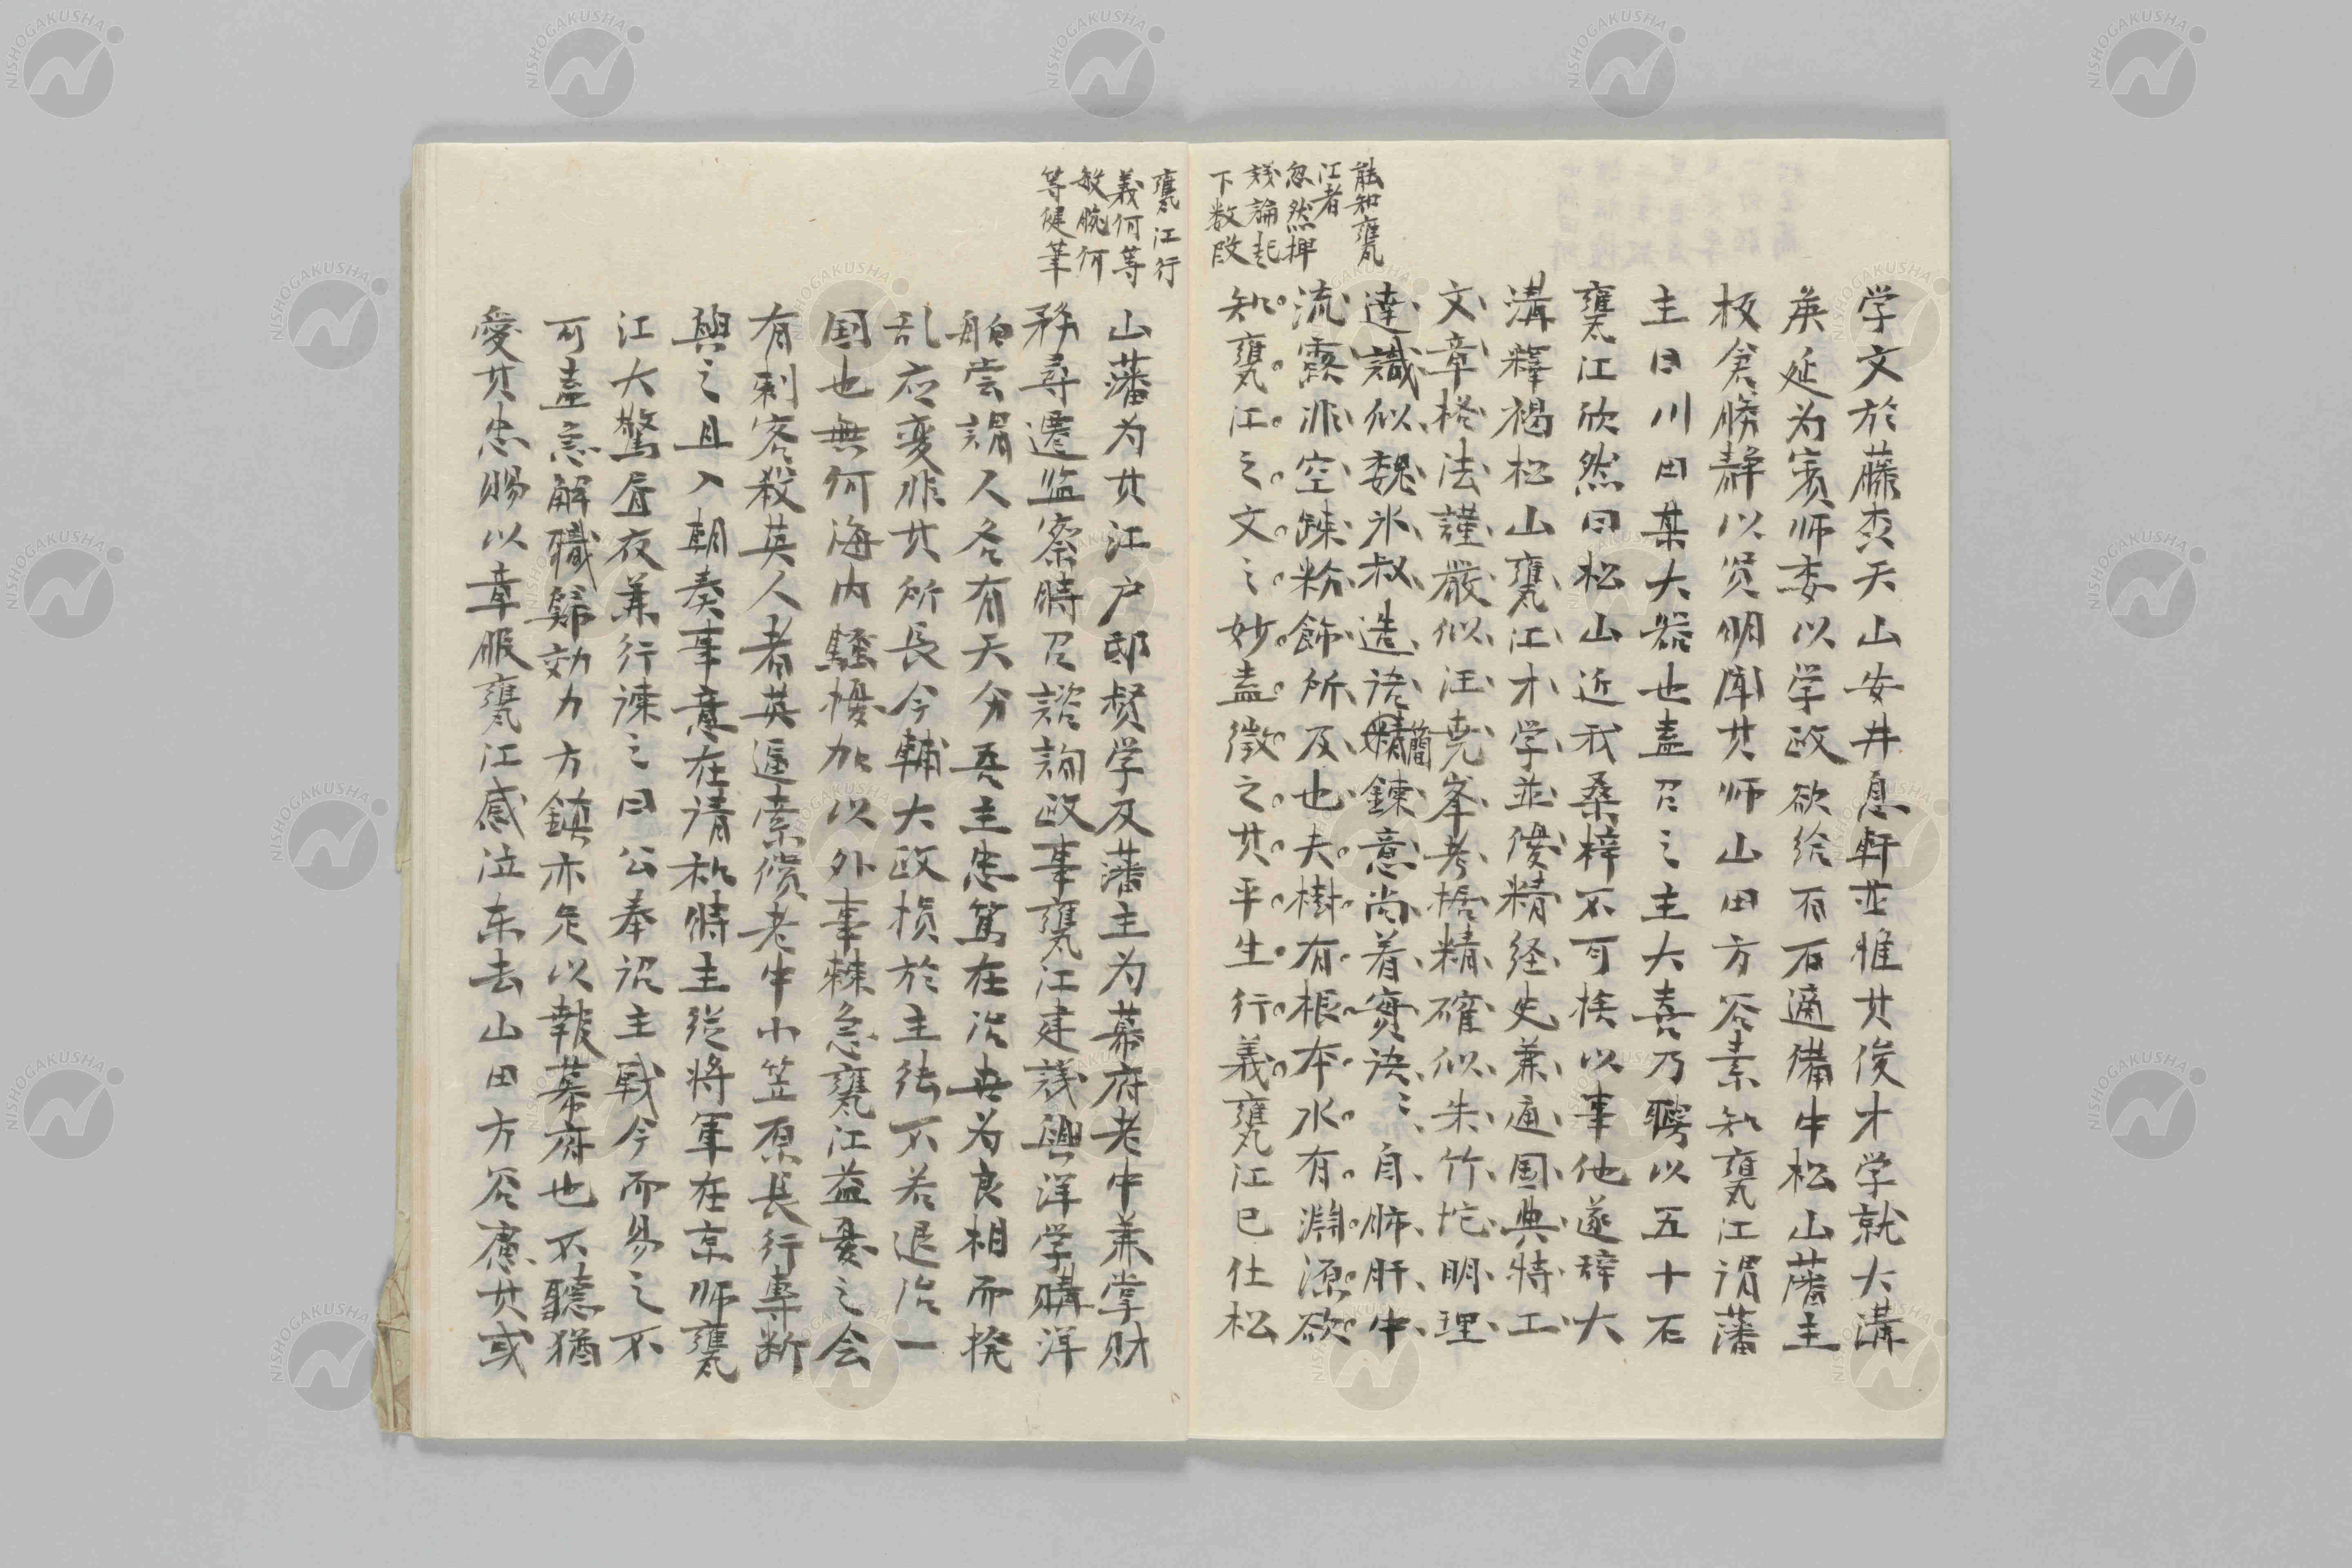 能知甕
江者
忽然押
議論起
下数段
学文於藤森天山安井息軒並惟其俊才学就大溝
矦延为賓师委以学政欲给百石適備中松山藩主
板倉勝静以贤明闻其师山田方谷素知甕江谓藩
主曰川田某大器也盍召之主大喜乃聘以五十石
甕江欣然曰松山近我桑梓不可俟以事他遂辞大
溝釋褐松山甕江才学並優精経史兼通国典特工
文章格法謹嚴似汪堯峯考据精確似朱竹垞明理
達識似魏氷叔造语簡鍊意尚着實決〻自肺肝中
流露非空疎粉飾所及也夫樹有根本水有淵源欲
知甕江之文之妙盍徴之其平生行義甕江已仕松
甕江行
義何等
敏腕何
等健筆
山藩为其江户邸督学及藩主为幕府老中兼掌財
務尋遷监察時召諮詢政事甕江建議興洋学購洋
舶尝謂人各有天分吾主忠篤在治世为良相而撥
乱应変非其所長今輔大政損於主德不若退治一
国也無何海内騷擾加以外事棘急甕江益憂之会
有刺客殺英人者英逼索償老中小笠原長行專断
與之且入朝奏事意在请和時主從将軍在京师甕
江大驚昼夜兼行諫之曰公奉诏主戦今而易之不
可盍急解職歸効力方鎮亦足以報幕府也不聽猶
愛其忠賜以章服甕江感泣东去山田方谷慮其或
NISHOGAKUSHA